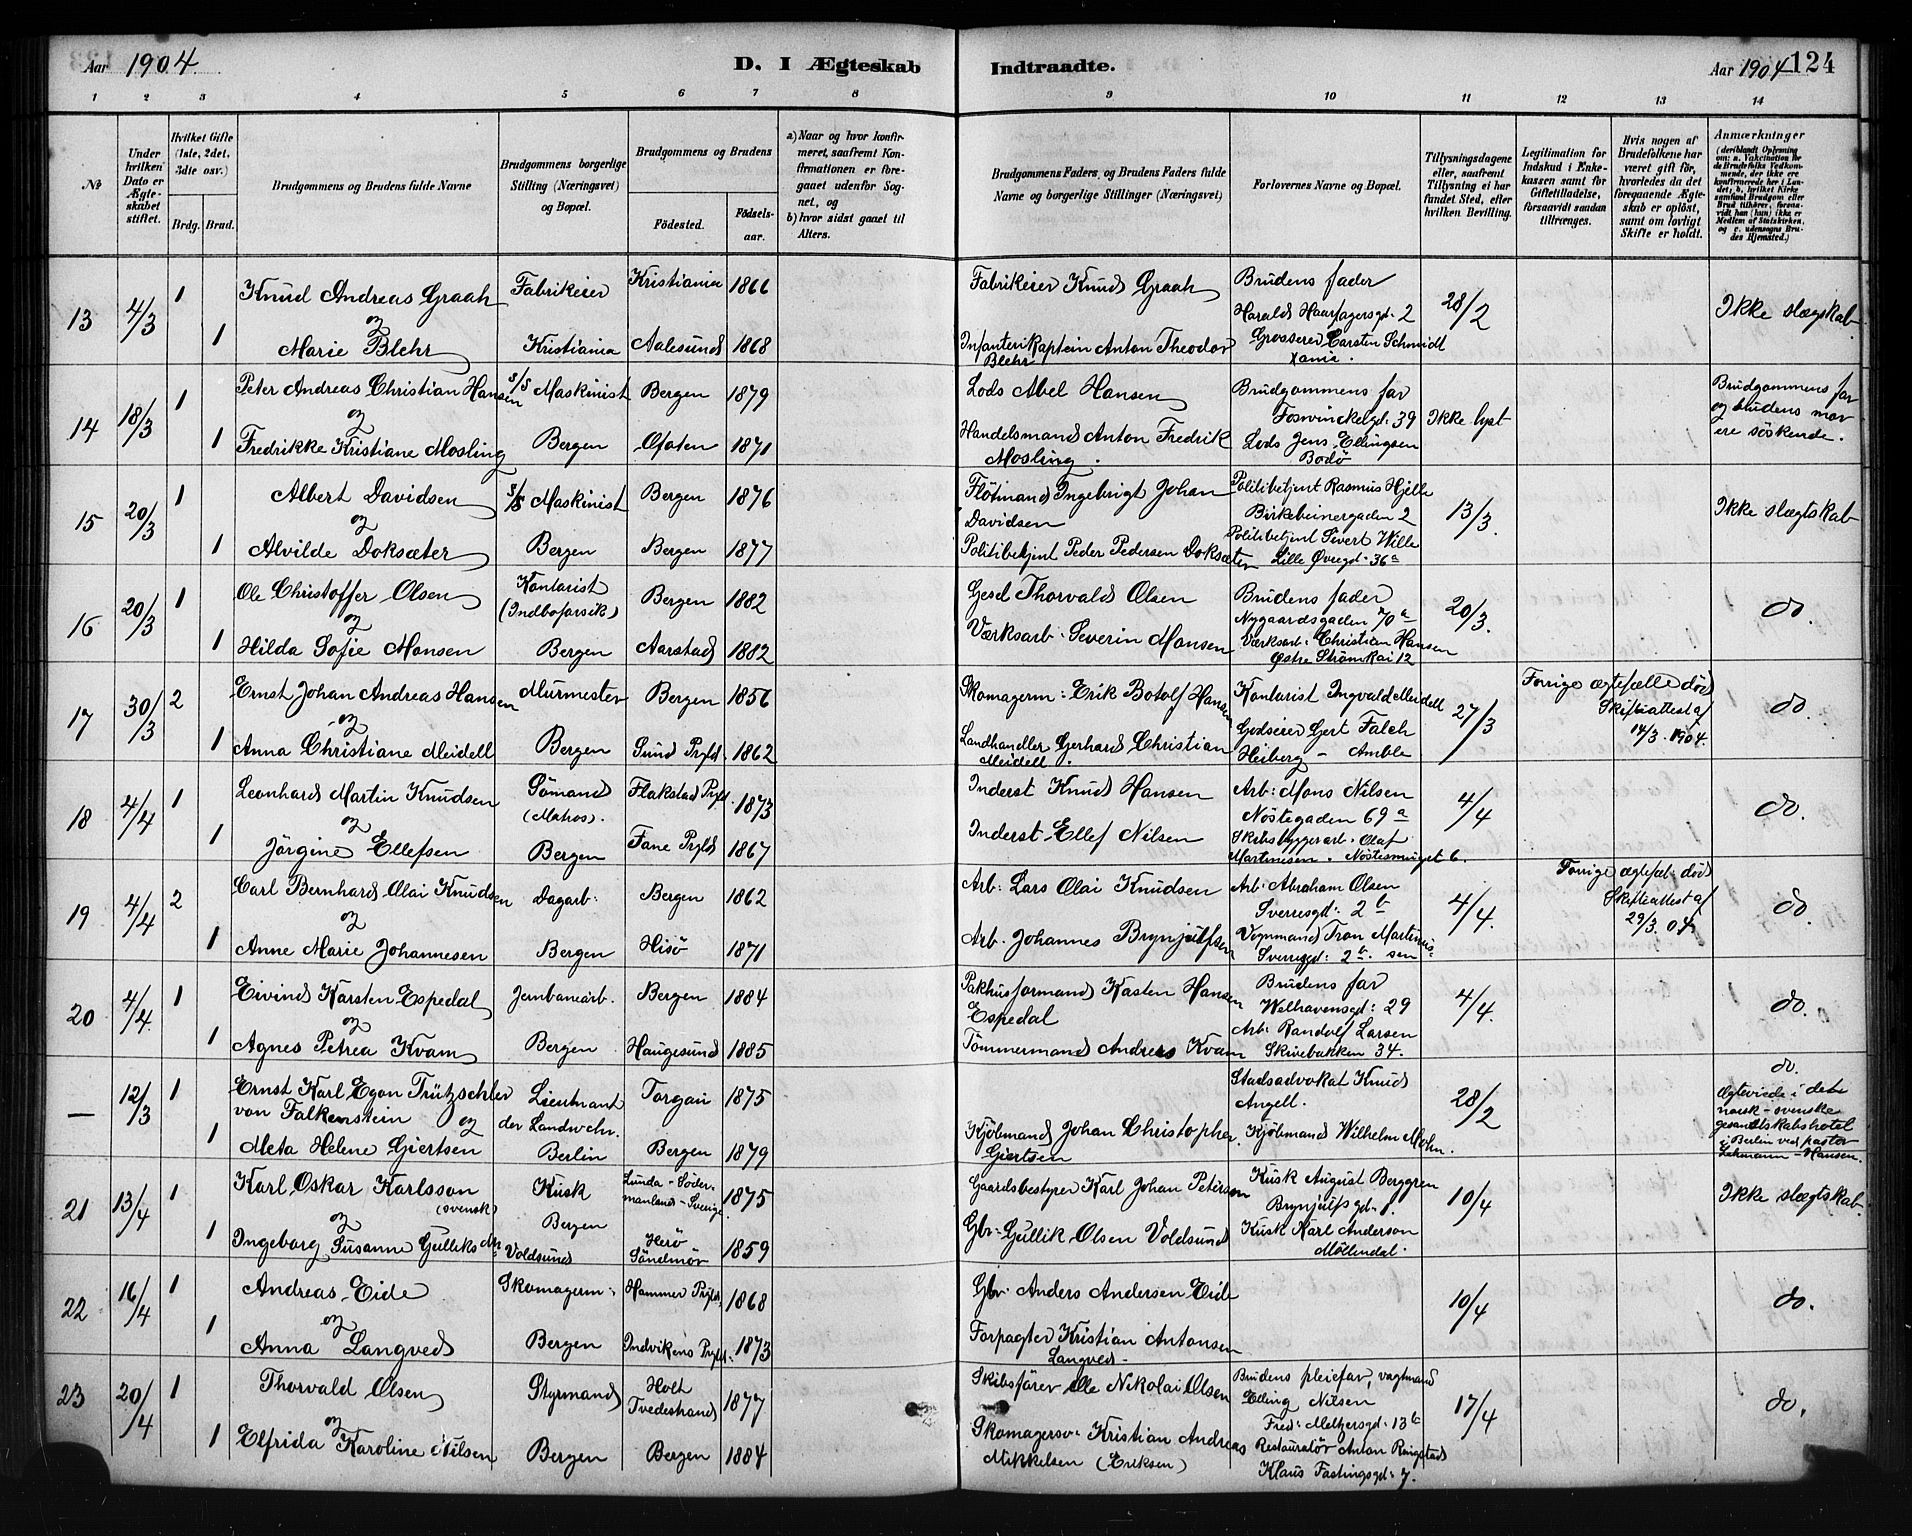 Aar 1904. D. I Ægteskab Indtraadte. Aar 1904 124
1 2 3 4 5 6 7 8 9 10 11 12 13 14
No
Under hvilken Dato er Ægteskabet stiftet.
Hvilket Gifte (1ste, 2det, 3die osv.)
Brdg. Brud.
Brudgommens og Brudens fulde Navne
Brudgommens borgerlige Stilling (Næringsvei) og Bopæl.
Brudgommens og Brudens
Fødested.
Fødselsaar.
a) Naar og hvor konfirmeret, saafremt Konfirmationen er foregaaet udenfor Sognet, og
b) hvor sidst gaaet til Alters.
Brudgommens Faders, og Brudens Faders fulde Navne og borgerlige Stillinger (Næringsvei)
Forlovernes Navne og Bopæl.
Tillysningsdagene eller, saafremt Tillysning ei har fundet Sted, efter hvilken Bevilling.
Legitimation for Indskud i Enkekassen samt for Giftetilladelse, forsaavidt saadan tiltrænges.
Hvis nogen af Brudefolkene har været gift før, hvorledes da det foregaaende Ægteskab er opløst, samt om lovligt Skifte er holdt.
Anmærkninger (deriblandt Oplysning om: a. Vakcination for de Brudefolks Vedkommende, der ikke ere konfirmerede her i Landet; b. hvilket Kirkesamfund Brudgom eller Brud tilhører, forsaavidt han (hun) ikke er Medlem af Statskirken, og c. udensogns Brudes Hjemsted.)
13 4/3 1 Knud Andreas Graah Fabrikeier Kristiania 1866 Fabrikeier Knud Graah Brudens fader
og Haralds Haarfagersgd. 2 28/2 Ikke slægtskab
1 Marie Blehr Kristiania Aalesund 1868 Infanterikaptein Anton Theodor Grosserer Carsten Schmidt
Blehr Xania.
14 18/3 1 Peter Andreas Christian Hansen S/S Maskinist Bergen 1879 Lods Abel Hansen Brudgommens far Brudgommens far
og Foswinckelgd: 39 Ikke lyst og brudens mor
1 Fredrikke Kristiane Mosling Bergen Ofoten 1871 Handelsmand Anton Fredrik Lods Jens Ellingsen ere söskende.
Mosling. Bodø
15 20/3 1 Albert Davidsen S/S Maskinist Bergen 1876 Fløtmand Ingebrigt Johan Politibetjent Rasmus Hjelle
og Davidsen Birkebeinergaden 2 13/3. Ikke slægtskab
1 Alvilde Doksæter Bergen Bergen 1877 Politibetjent Peder Pedersen Doksæter Politibetjent Sivert Wille
Lille Øvregd. 36a
16 20/3 1 Ole Christoffer Olsen Kontorist Bergen 1882 Gesel Thorvald Olsen Brudens fader
og Nygaardsgaden 70a 20/3. do
1 Hilda Sofie Monsen Bergen Aarstad 1882 Værksarb. Severin Monsen Værksarb: Christian Hansen
Østre Strömkai 12
17 30/3 2 Ernst Johan Andreas Hansen Murmester Bergen 1856 Skomagerm: Erik Botolf Hansen Kontorist Ingvald Meidell 27/3 Forrige ægtefælle död
og Skifteattest af do.
1 Anna Christiane Meidell Bergen Sund Prgld. 1862 Landhandler Gerhard Christian Godseier Gert Falch 14/3. 1904.
Meidell. Heiberg – Amble
18 4/4 1 Leonhard Martin Knudsen Sömand Flakstad Prgld. 1873 Inderst Knud Hansen Arb: Mons Nilsen
og (Matros). Nöstegaden 69a 4/4 do.
1 Jörgine Ellefsen Bergen Fane Prgld 1867 Inderst Ellef Nilsen Skibsbyggerarb. Olaf
Martinusen. Nöstesmuget 6.
19 4/4 2 Carl Bernhard Olai Knudsen Dagarb: Bergen 1862 Arb: Lars Olai Knudsen Arb: Abraham Olsen Forrige ægtef. död
og Sverresgd: 2b 4/4. Skifteattest af do.
1 Anne Marie Johannesen Bergen Hisö 1871 Arb. Johannes Brynjulfsen Vognmand Tron Martinussen 29/3. 04.
Sverresgd: 2b
20 4/4 1 Eivind Karsten Espedal Jernbanearb. Bergen 1884 Pakhusformand Kasten Hansen Brudens far
og Espedal Welhavensgd: 29 4/4. do
1 Agnes Petrea Kvam Bergen Haugesund 1885 Tømmermand Andreas Kvam Arb: Randolf Larsen
Skivebakken 34.
— 12/3 1 Ernst Karl Egon Trützschler Lieutnant Torgau 1875 Stadsadvokat Knud do.
von Falkenstein og der Landwehr. Angell. 28/2 Ægteviede i det norsk-svenske gesandtskabshotel
1 Meta Helene Gjertsen Berlin Bergen 1879 Kjöbmand Johan Christopher Kjöbmand Wilhelm Mohn. i Berlin ved pastor
Gjertsen Lehmann-Hansen.
21 13/4 1 Karl Oskar Karlsson Kusk Lunda – Södermanland – Sverige. 1875 Gaardsbestyrer Karl Johan Peterson Kusk August Berggren 10/4 Ikke slægtskab.
(svensk) og Bergen Brynjulfsgd. 1.
1 Ingeborg Susanne Gulliksdn Voldsund Herö Söndmör 1859 Gbr. Gullik Olsen Voldsund Kusk Karl Anderson
Möllendal.
22 16/4 1 Andreas Eide Skomagerm: Hammer Prgld. 1868 Gbr. Anders Andersen Eide
og 10/4 do.
1 Anna Langved Bergen Indvikens Prgld. 1873 Forpagter Kristian Antonsen
Langved.
23 20/4 1 Thorvald Olsen Styrmand Holt Tvedestrand 1877 Skibsförer Ole Nikolai Olsen Brudens pleiefar, vagtmand
og Elling Nilsen 17/4 do.
Fred: Meltzersgd: 13b
1 Elfrida Karoline Nilsen Bergen Bergen 1884 Skomagersv. Kristian Andreas Restauratör Anton Ringstad
Mikkelsen (Eriksen) Klaus Fastingsgd: 7.